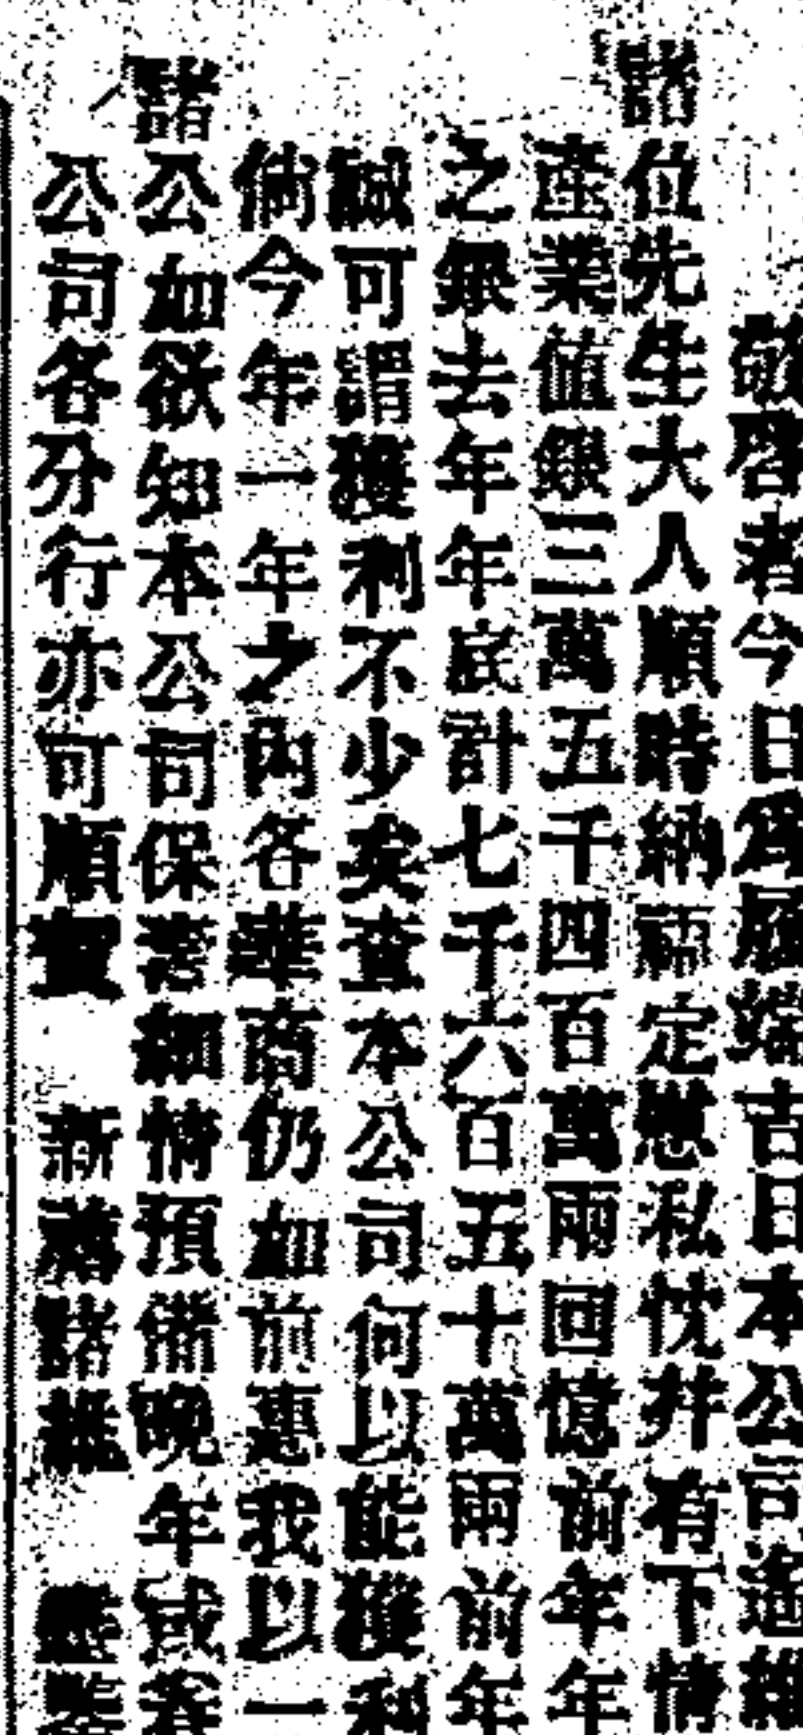 敬啓者今日爲履端吉日本公司遙維
諸位先生大人順時納福定慰私忱并有下情
產業值銀三萬五千四百萬兩回憶前年年
之銀去年年底計七千六百五十萬兩前年
誠可謂獲利不少矣查本公司何以能獲利
倘今年一年之內各華商仍如前惠我以一
諸公如欲知本公司保壽細情預備晚年或客
公司各分行亦可順賀 新禧諸維